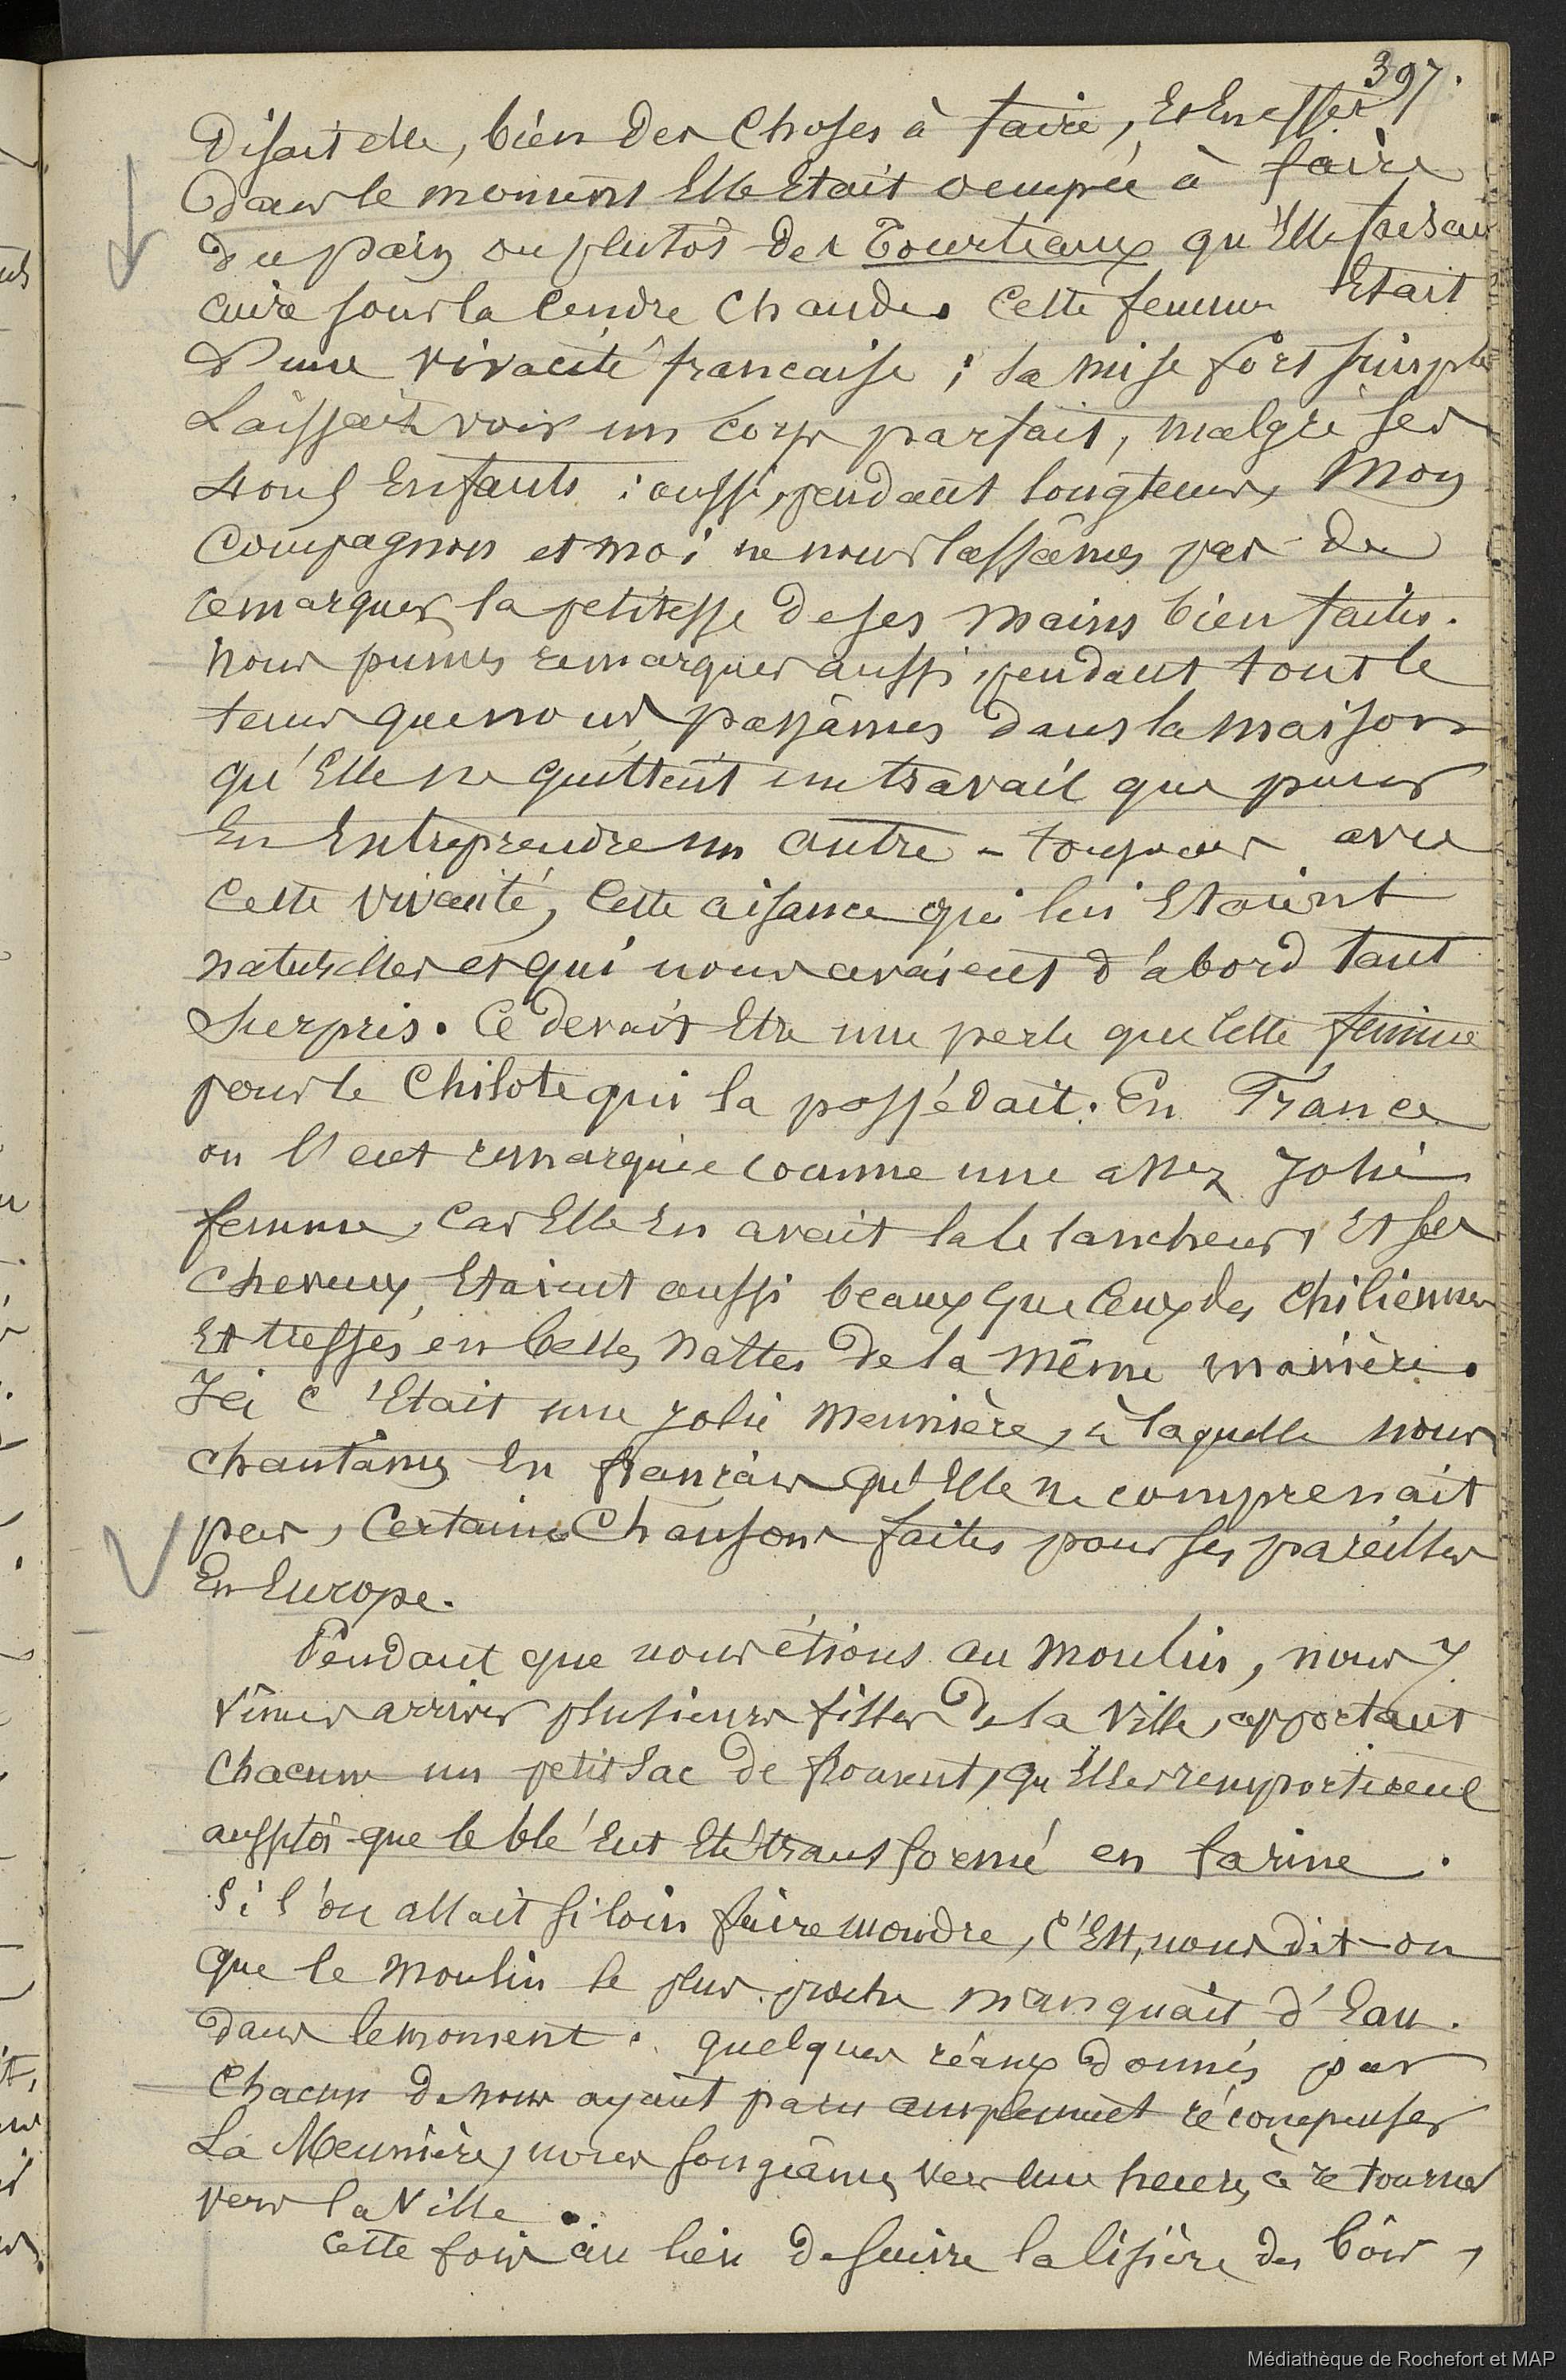 397.
Disait elle, bien des choses à faire, Et En effet
Dans le moment Elle Etait occupée à faire
du pain ou plutôt des Tourteaux qu'Elle faisait
cuire sous la cendre chaude. Cette femme Etait
D'une vivacité francaise ; sa mise fort simple
Laissait voir un corps parfait, malgré ses
Enfants : aussi, pendant longtems, Mon
Compagnon et moi ne nous lassâmes pas de
remarquer la petitesse de ses mains bien faites.
Nous pûmes remarquer aussi, pendant tout le
tems que nous passâmes dans la maison
qu'Elle ne quittait un travail que pour
En Entreprendre un autre - toujours avec
Cette vivacité, Cette aisance qui lui Etaient
naturelles et qui nous avaient d'abord tant
Surpris. Ce devait Etre une perle que cette femme
pour le Chilote qui la possédait. En France
on l'eut remarquée comme une assez Jolie
femme, car Elle En avait la blancheur, Et ses
cheveux Etaient aussi beaux que ceux des Chiliennes
Et tressés en belles nattes de la même manière.
Ici c'Etait une jolie Meunière, à laquelle nous
chantâmes En français qu'Elle ne comprenait
pas, Certaines Chansons faites pour ses pareilles
En Europe.
Pendant que nous étions au moulin, nous y
vîmes arriver plusieurs filles de la Ville, apportant
Chacune un petit sac de froment, qu'Elles remportèrent
aussitôt que le blé Eut Eté transformé en farine.
Si l'on allait si loin faire moudre, C'Est, nous dit-on
que le moulin le plus proche manquait d'Eau.
dans le moment. quelques réaux donnés par
Chacun de nous ayant paru amplement récompenser
La Meunière, nous songeâmes, vers une heure, à retourner
vers la Ville.
Cette fois au lieu de suivre la lisière des bois,
Médiathèque de Rochefort et MAP